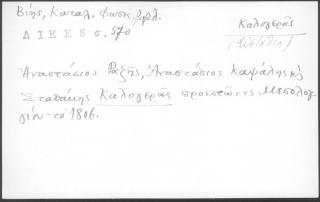 Βέης, Καταλ. Φωσκ. βιβλ.
ΔΙΕΕ 8 σ. 570
Καλογερᾶς
(Εὐστάθιος)
Ἀναστάσιος Ραζῆς, Ἀναστάσιος Καψάλης κὴ
Σταθάκης Καλογερᾶς προεστῶτες Μεσολογ
γίου τὸ 1806.